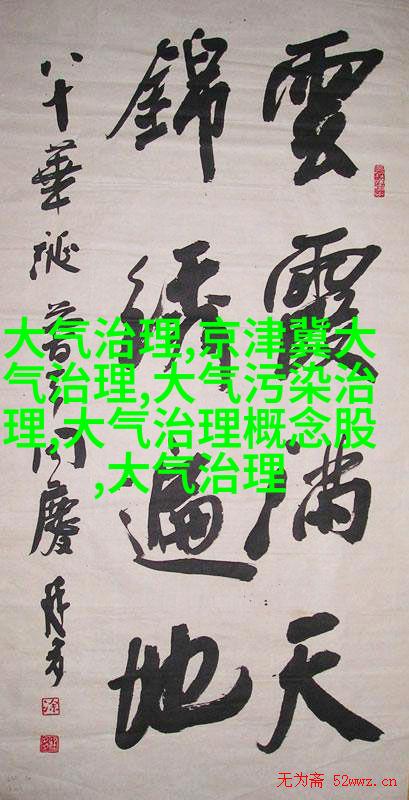 雲霞满天
錦绣遍地
八十華诞普天同慶
大气治理,京津冀大
气治理,大气污染治
理,大气治理概念股
,大气治理
无为斋 52wwz.cn